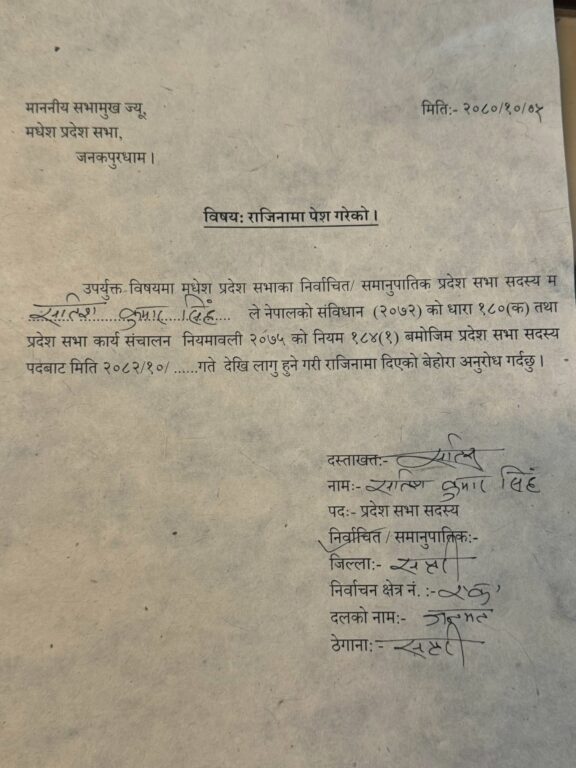 माननीय सभामुख ज्यू,
मिति:- २०८०/१०/०५
मधेश प्रदेश सभा,
जनकपुरधाम।
विषय: राजिनामा पेश गरेको।
उपर्युक्त विषयमा मधेश प्रदेश सभाका निर्वाचित/ समानुपातिक प्रदेश सभा सदस्य म
सतिश कुमार सिंह ले नेपालको संविधान (२०७२) को धारा १८०(क) तथा
प्रदेश सभा कार्य संचालन नियमावली २०७५ को नियम १८४(१) बमोजिम प्रदेश सभा सदस्य
पदबाट मिति २०८२/१०/ ......गते देखि लागु हुने गरी राजिनामा दिएको बेहोरा अनुरोध गर्दछु।
दस्ताखत:-
नाम:- सतिश कुमार सिंह
पद:- प्रदेश सभा सदस्य
निर्वाचित / समानुपातिक:-
जिल्ला:- सप्तरी
निर्वाचन क्षेत्र नं. :- एक
दलको नाम:- जनमत
ठेगाना:- सप्तरी